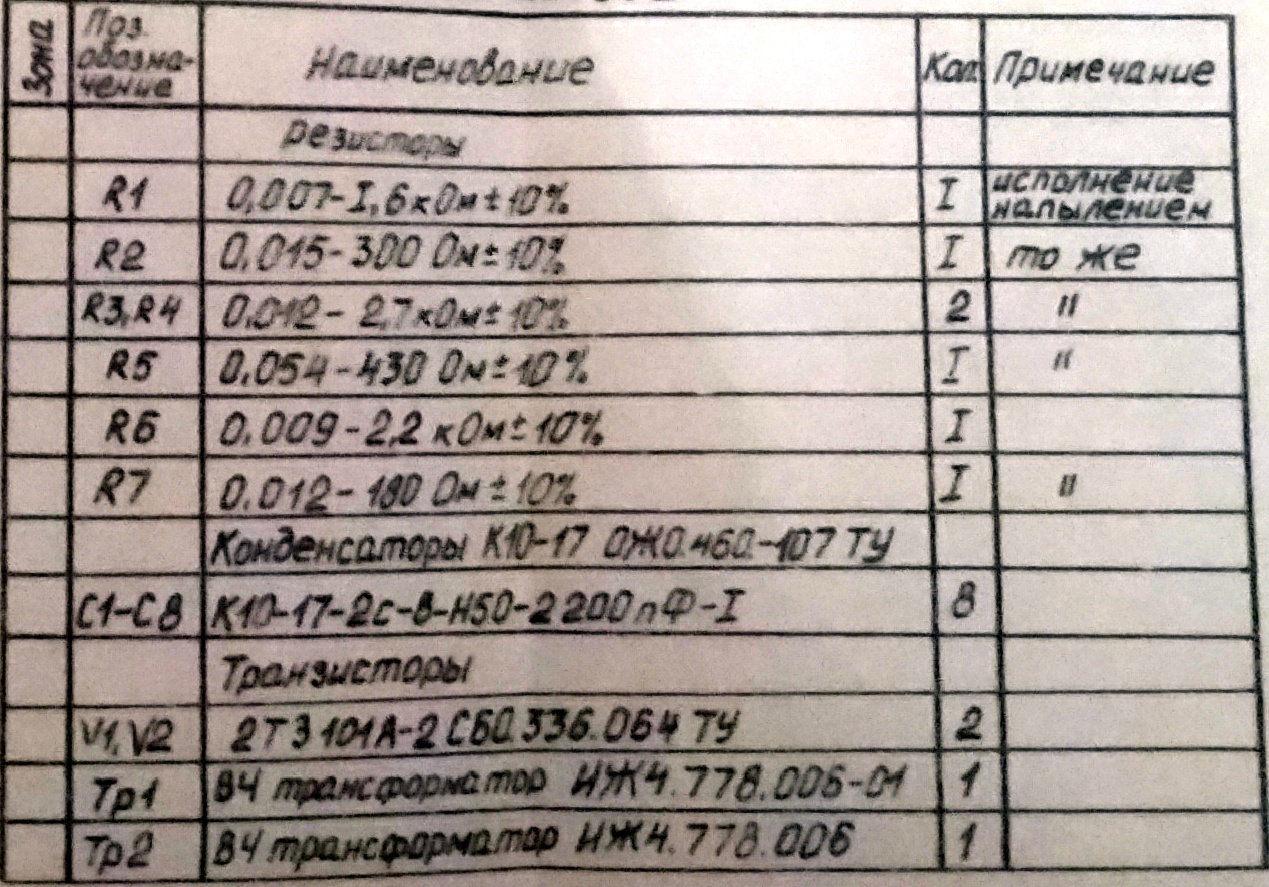 Зона
Поз. обозна-чение Наименование Кол. Примечание
Резисторы
R1 0,007-I,6 кОм ± 10% I исполнение напылением
R2 0.015-300 Ом ± 10% I то же
R3,R4 0.012- 2,7 кОм ± 10% 2 "
R5 0.054-430 Ом ± 10% I "
R6 0.009-2,2 кОм ± 10% I
R7 0.012-180 Ом ± 10% I "
Конденсаторы К10-17 ОЖ0.460.-107 ТУ
C1-C8 К10-17-2с-в-Н50-2200пФ-I 8
Транзисторы
V1,V2 2Т3101А-2 СБ0.336.064 ТУ 2
Тр1 ВЧ трансформатор ИЖ4.778.006-01 1
Тр2 ВЧ трансформатор ИЖ4.778.006 1